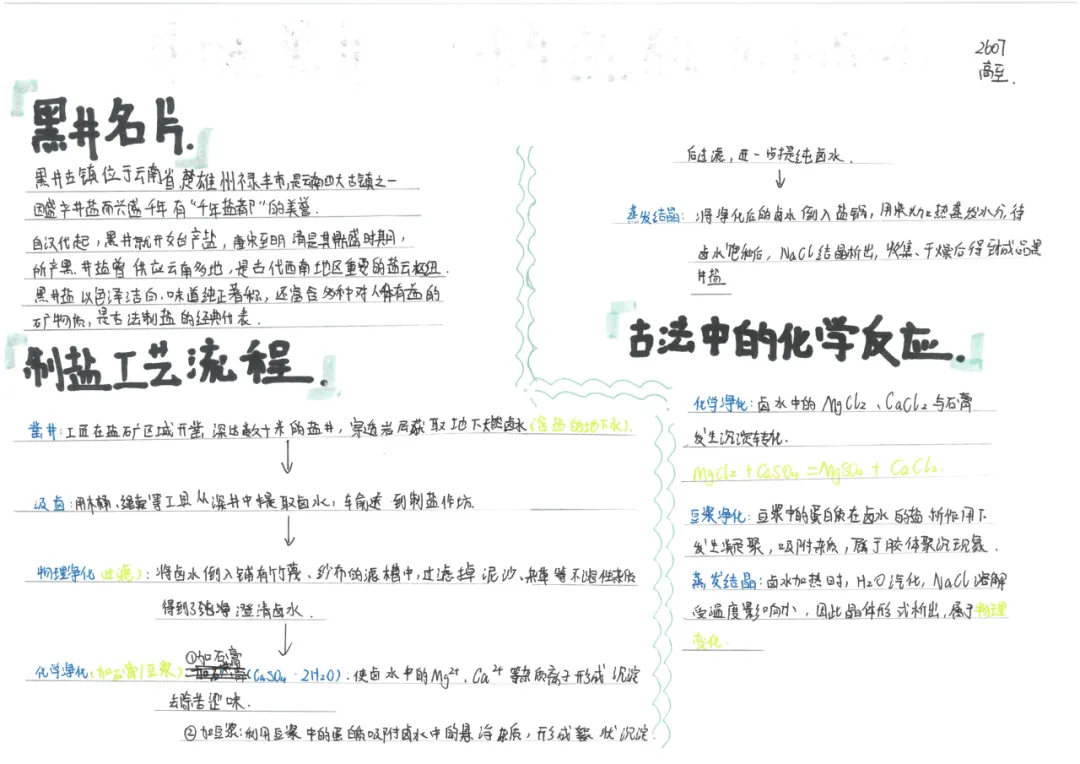 2607
高至.
黑井名片.
黑井古镇位于云南省,楚雄州禄丰市,是云南四大古镇之一
因盛产井盐而兴盛千年有“千年盐都”的美誉.
自汉代起，黑井就开始产盐，唐宋至明清是其鼎盛时期，
所产黑井盐曾供应云南多地，是古代西南地区重要的盐云枢纽.
黑井盐以色泽洁白、味道纯正著称，还富含多种对人体有益的
矿物质，是古法制盐的经典代表.
制盐工艺流程.
凿井:工匠在盐石矿区域开凿,深达数十米的盐井，穿透岩层获取地下天然卤水(含盐的地下水).
↓
汲卤:用木桶、绳索等工具从深井中提取卤水，车俞送到制盐作坊.
↓
物理净化(过滤):将卤水倒入铺有竹篾、纱布的滤槽中,过滤掉泥沙、等不溶性杂质
得到了纯净澄清卤水.
↓
化学净化(加石膏/豆浆)①加石膏(CaSO₄·2H₂O):使卤水中的Mg²⁺,Ca²⁺等杂质离子形成沉淀
去除苦涩味.
②加豆浆:利用豆浆中的蛋白质吸附卤水中的悬浮杂质，形成絮状沉淀.
后过滤，进一步提纯卤水.
↓
蒸发结晶:将净化后的卤水倒入盐锅，用柴火加热蒸发水分,待
卤水饱和后，NaCl结晶析出，收集、干燥后得到成品黑
井盐
古法中的化学反应.
化学净化:卤水中的MgCl₂、CaCl₂与石膏
发生沉淀转化.
MgCl₂+CaSO₄=MgSO₄+CaCl₂.
豆浆净化:豆浆中的蛋白质在卤水的盐析作用下
发生凝聚，吸附杂质，属于胶体聚沉现象.
蒸发结晶:卤水加热时,H₂O汽化，NaCl溶解
受温度影响小，因此晶体形式析出,属于物理
变化.